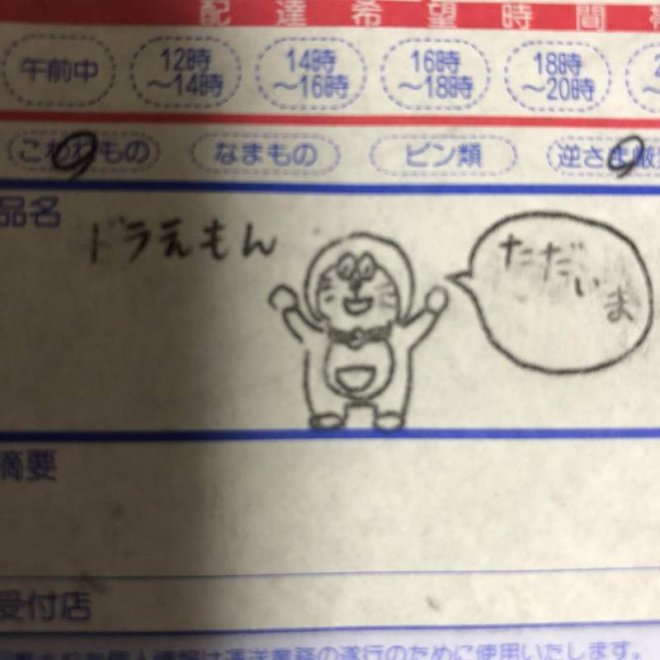 配達希望時間
午前中
12時～14時
14時～16時
16時～18時
18時～20時
こわれもの
なまもの
ビン類
逆さま厳
品名
ドラえもん
ただいま
摘要
受付店
個人情報は運送業務の遂行のために使用いたします。